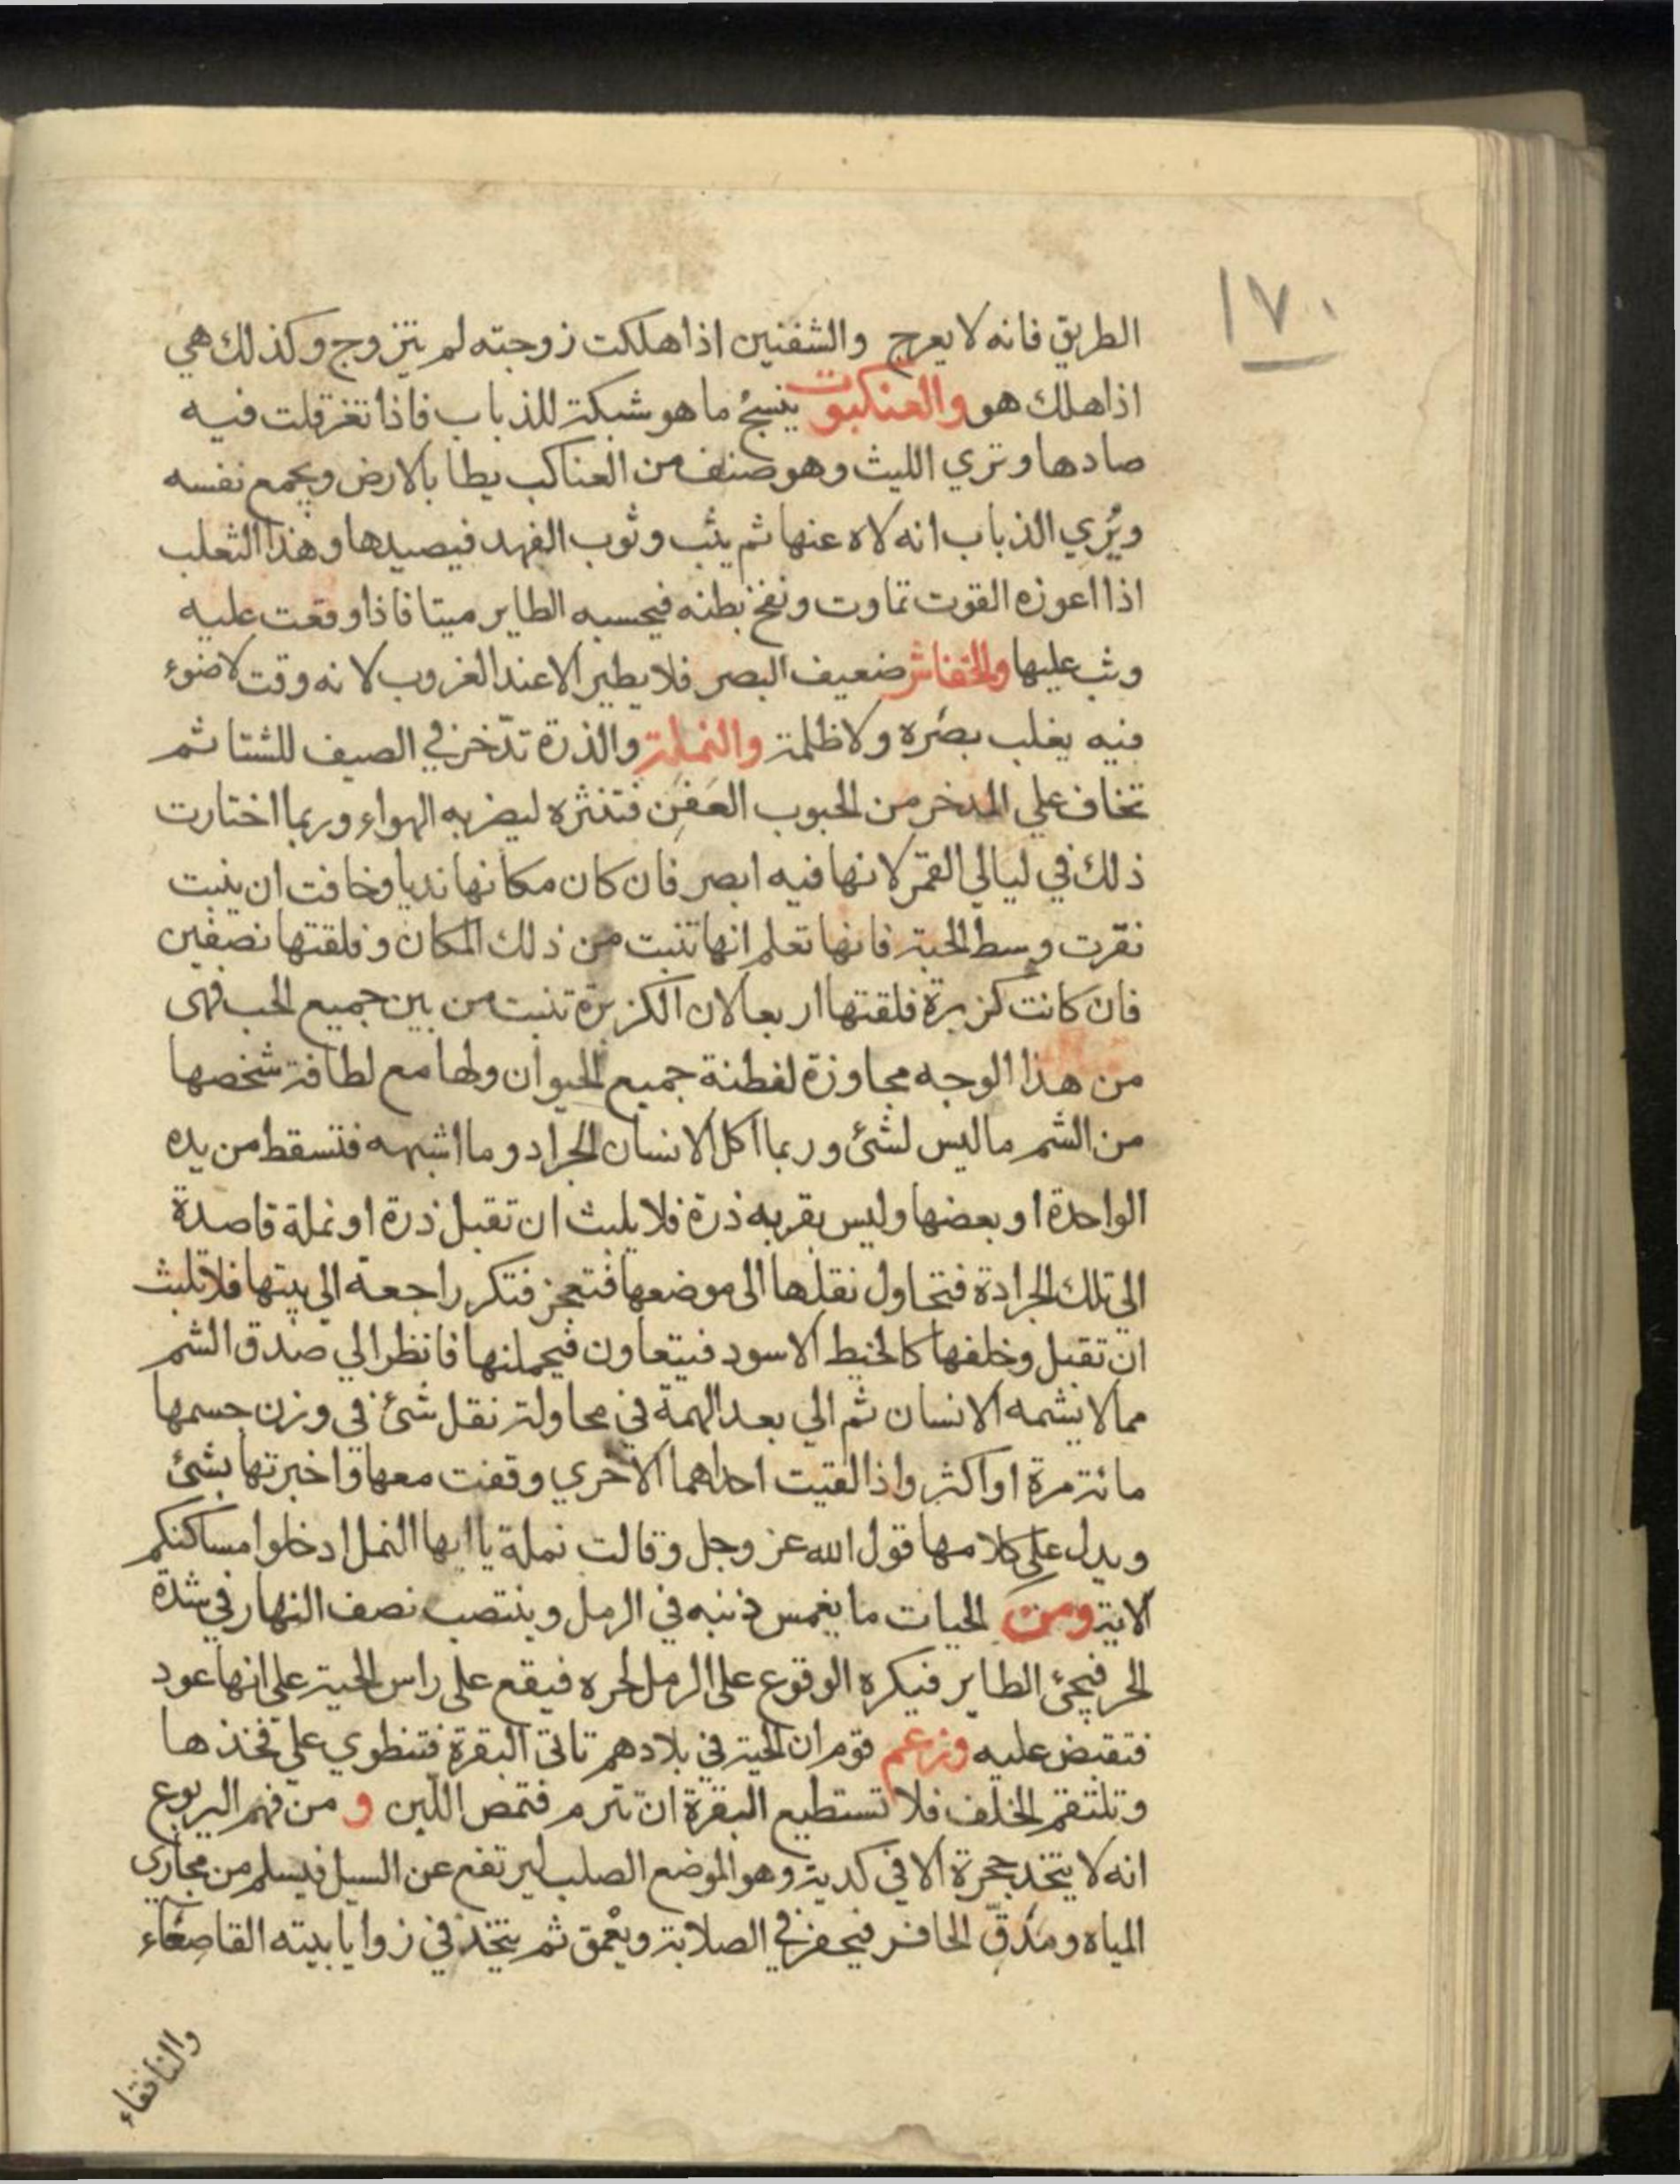 ١٧٠
الطريق فانه لا يعرج والشفنين اذا هلكت زوجته لم يتزوج وكذلك هي
اذا هلك هو والعنكبوت ينسج ما هو شبكة للذباب فاذا تغرقلت فيه
صادها وتري الليث وهو صنف من العناكب يطا بالارض ويجمع نفسه
ويُري الذباب انه لاه عنها ثم يثب وثوب الفهد فيصيدها وهذا الثعلب
اذا اعوزه القوت تماوت ونفخ بطنه فيحسبه الطاير ميتا فاذا وقعت عليه
وثب عليها والخفاش ضعيف البصر فلا يطير الا عند الغروب لانه وقت لا ضوء
فيه يغلب بصره ولا ظلمة والنملة والذرة تدّخر في الصيف للشتا ثم
تخاف علي المدخر من الحبوب العَفِن فتنثره ليضربه الهواء وربما اختارت
ذلك في ليالي القمر لانها فيه ابصر فان كان مكانها نديا وخافت ان ينبت
نقرت وسط الحبة فانها تعلم انها تنبت من ذلك المكان وفلقتها نصفين
فان كانت كزبرة فلقتها اربعا لان الكزبرة تنبت من بين جميع الحب فهى
من هذا الوجه مجاوزة لفطنة جميع الحيوان ولها مع لطافة شخصها
من الشم ما ليس لشئ وربما اكل الانسان الجراد وما اشبهه فتسقط من يده
الواحدة او بعضها وليس بقربه ذرة فلا يلبث ان تقبل ذرة او نملة قاصدة
الي تلك الجرادة فتحاول نقلها الى موضعها فتعجز فتكر راجعة الى بيتها فلا تلبث
ان تقبل وخلفها كالخيط الاسود فيتعاون فيحملنها فانظر الي صدق الشم
مما لا يشمه الانسان ثم الي بعد الهمة في محاولة نقل شئ في وزن جسمها
مائة مرة او اكثر واذا لقيت احداهما الاخري وقفت معها واخبرتها بشئ
ويدل علي كلامها قول الله عز وجل وقالت نملة يا ايها النمل ادخلوا مساكنكم
الاية ومن الحيات ما يغمس ذنبه في الرمل وينتصب نصف النهار في شدة
الحر فيجئ الطاير فيكره الوقوع على الرمل لحره فيقع على راس الحية على انها عود
فتقبض عليه وزعم قوم ان الحية في بلادهم تاتى البقرة فتنطوي على فخذها
وتلتقم الخلف فلا تستطيع البقرة ان تترم فتمص اللبن و من فهم اليربوع
انه لا يتخذ جحرة الا في كدية وهو الموضع الصلب ليرتفع عن السيل فيسلم من مجاري
المياه ومدقّ الحافر فيحفر في الصلابة ويعمق ثم يتخذ في زوايا بيته القاصعاء
والنافقاء